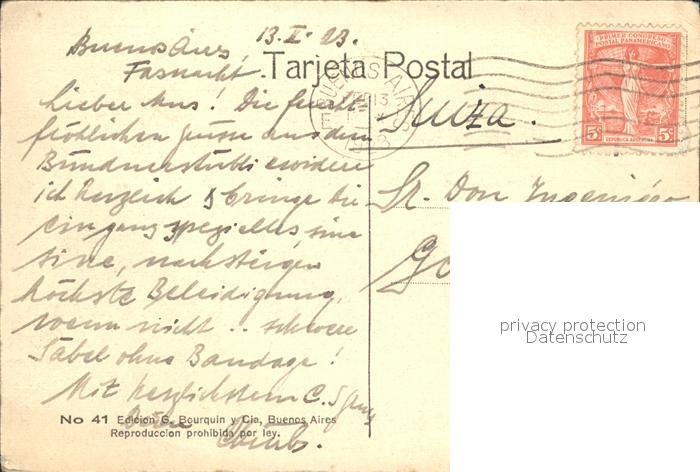 13. II. 23.
Buenos Aires
Fasnacht.
Tarjeta Postal
Lieber Aus! Die feucht
fröhlichen Grüsse aus dem
Bündnerstübli erwidere
ich herzlich & bringe Dir
ein ganz spezielles sine
sine, nachsteigen
höchste Beleidigung,
wenn nicht .. schwere
Säbel ohne Bandage!
Mit herzlichstem
No 41 Edicion G. Bourquin y Cia, Buenos Aires
Reproduccion prohibida por ley.
BUENOS AIRES
13
1923
PRIMER CONGRESO
POSTAL PANAMERICANO
5c 5c
REPUBLICA ARGENTINA
Suiza.
Sr. Don Ingeniero
privacy protection
Datenschutz